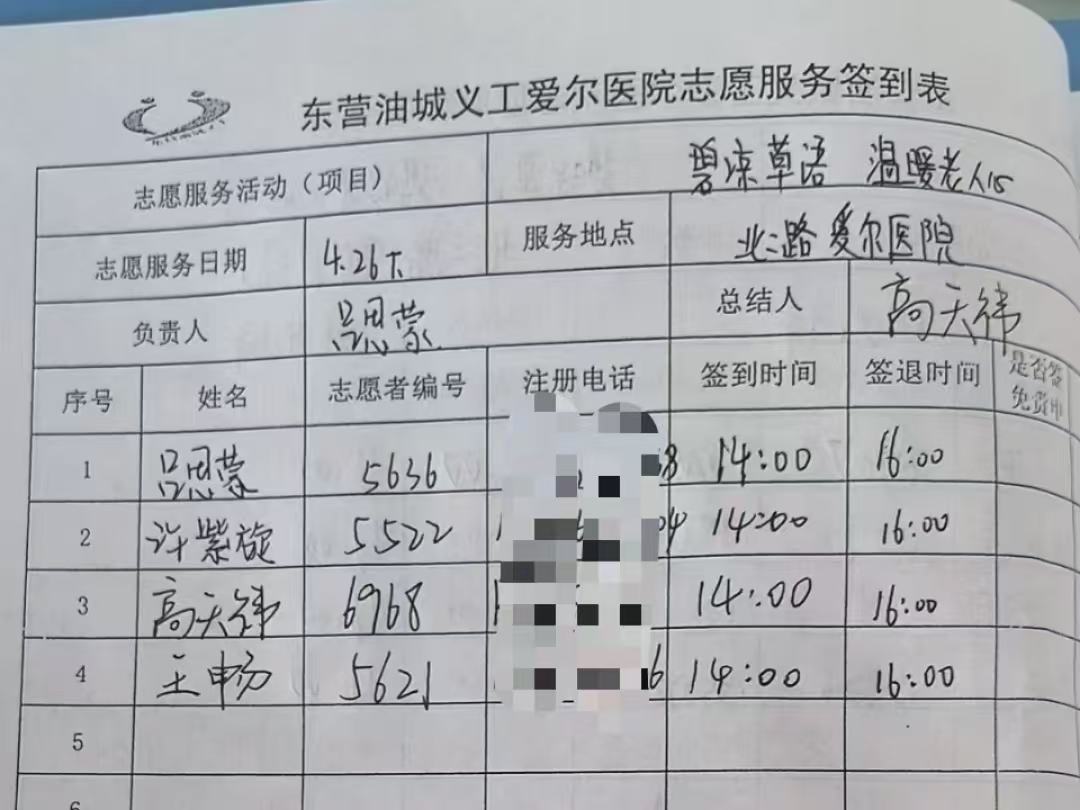 东营油城义工爱尔医院志愿服务签到表
志愿服务活动（项目） 碧凉草语 温暖老人心
志愿服务日期 4.26下 服务地点 北二路爱尔医院
负责人 吕思蒙 总结人 高天纬
序号 姓名 志愿者编号 注册电话 签到时间 签退时间 是否签
免费申
1 吕思蒙 5636 8 14:00 16:00
2 许紫旋 5522 04 14:00 16:00
3 高天纬 6968 14:00 16:00
4 王畅 5621 6 14:00 16:00
5
6